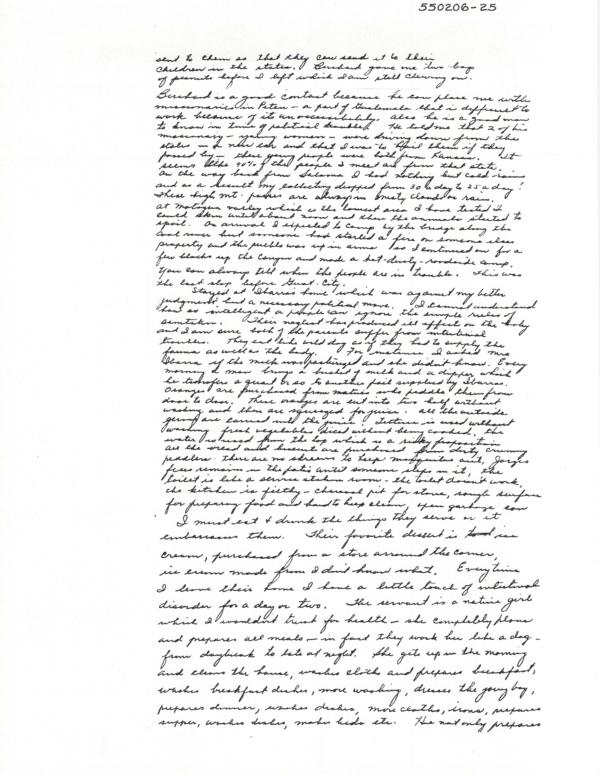 550206-25
sent to them so that they can send it to their
children in the states. Burchard gave me two bags
of peanuts before I left which I am still chewing on.
Burchard is a good contact because he can place me with
missionaries in Peten - a part of Guatemala that is difficult to
work because of its unaccessibility. Also he is a good man
to know in time of political troubles. He told me that 2 of his
missionary - young women - were driving down from the
states in a new car and that I was to them if they
passed by - these young people were both from Kansas. It
seems like 90% of the people I meet are from that state.
On the way back from Salama I had nothing but cold rains
and as a result my collecting dropped from 30 a day to 25 a day!
These high mt. passes are always in misty clouds or rain.
At Motagua valley which is the lowest area I have tested I
saved skins until about noon and then the animals started to
spoil. On arrival I expected to camp by the bridge along the
cool river but someone had started a fire on someone elses
property and the pueblo was up in arms so I continued on for a
few blocks up the canyon and made a hot-dusty-roadside camp.
You can always tell when the people are in trouble. This was
the last stop before Guat. City.
Stayed at Ibarra's home which was against my better
judgment, but a necessary political move. I cannot understand
how so intelligent a people can ignore the simple rules of
sanitation. Their neglect has produced ill effect on the baby
and I am sure both of the parents suffer from intestinal
troubles. They eat like wild dog as if they had to supply the
fauna as well as the body. For instance I asked Mrs
Ibarra if the milk was pasturized and she didnt know. Every
morning a man brings a bucket of milk and a dipper which
he transfers a quart or so to another pail supplied by Ibarras.
Oranges are purchased from natives who peddle them from
door to door. These oranges are cut into two half without
washing and then are squeezed for juice. All the outside
germs are carried into the juice! Lettuce is used without
washing fresh vegetables diced without being cooked, the
water is used from the tap which is a risky proposition
all the bread and biscuit are purchased from dirty
peddlers there are no screens to keep mosquitos out, Jorge's
feces remains in the patio until someone steps in it, the
toilet is like a service station room - the toilet doesn't work,
the kitchen is filthy - charcoal pit for stove, rough surface
for preparing food and hard to keep clean, open garbage can
I must eat & drink the things they serve or it
embarrasses them. Their favorite dessert is ice
cream, purchased from a store arround the corner,
ice cream made from I dont know what. Everytime
I leave their home I have a little touch of intestinal
disorder for a day or two. The servant is a native girl
which I wouldnt trust for health - she completely plans
and prepares all meals - in fact they work her like a dog -
from daybreak to late at night. She gets up in the morning
and cleans the house, washes cloths and prepares breakfast,
washes breakfast dishes, more washing, dresses the young boy,
prepares dinner, washes dishes, more cloths, irons, prepares
supper, washes dishes, makes beds etc. He not only prepares